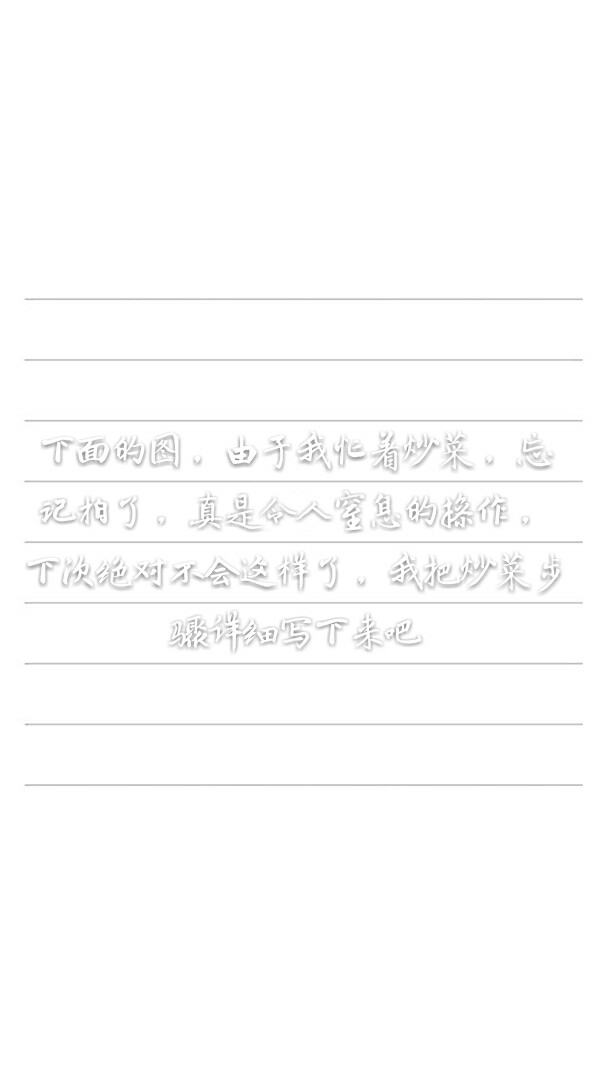 下面的图，由于我忙着炒菜，忘
记拍了，真是令人窒息的操作，
下次绝对不会这样了，我把炒菜步
骤详细写下来吧